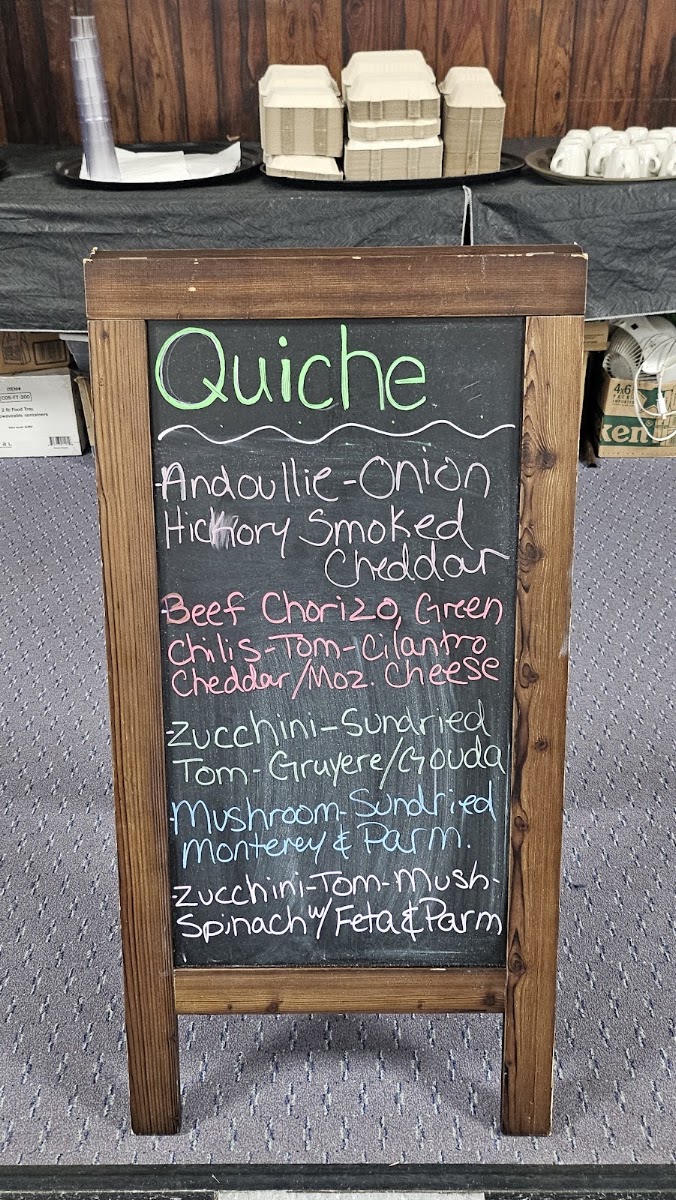 Quiche
-Andoullie-Onion
Hickory Smoked
Cheddar
-Beef Chorizo, Green
Chilis-Tom-Cilantro
Cheddar/Moz. Cheese
-Zucchini-Sundried
Tom-Gruyere/Gouda
-Mushroom-Sundried
Monterey & Parm.
-Zucchini-Tom-Mush-
Spinach w/ Feta & Parm
ITEM#
2 lb Food Tray
4x6
PACK
ken